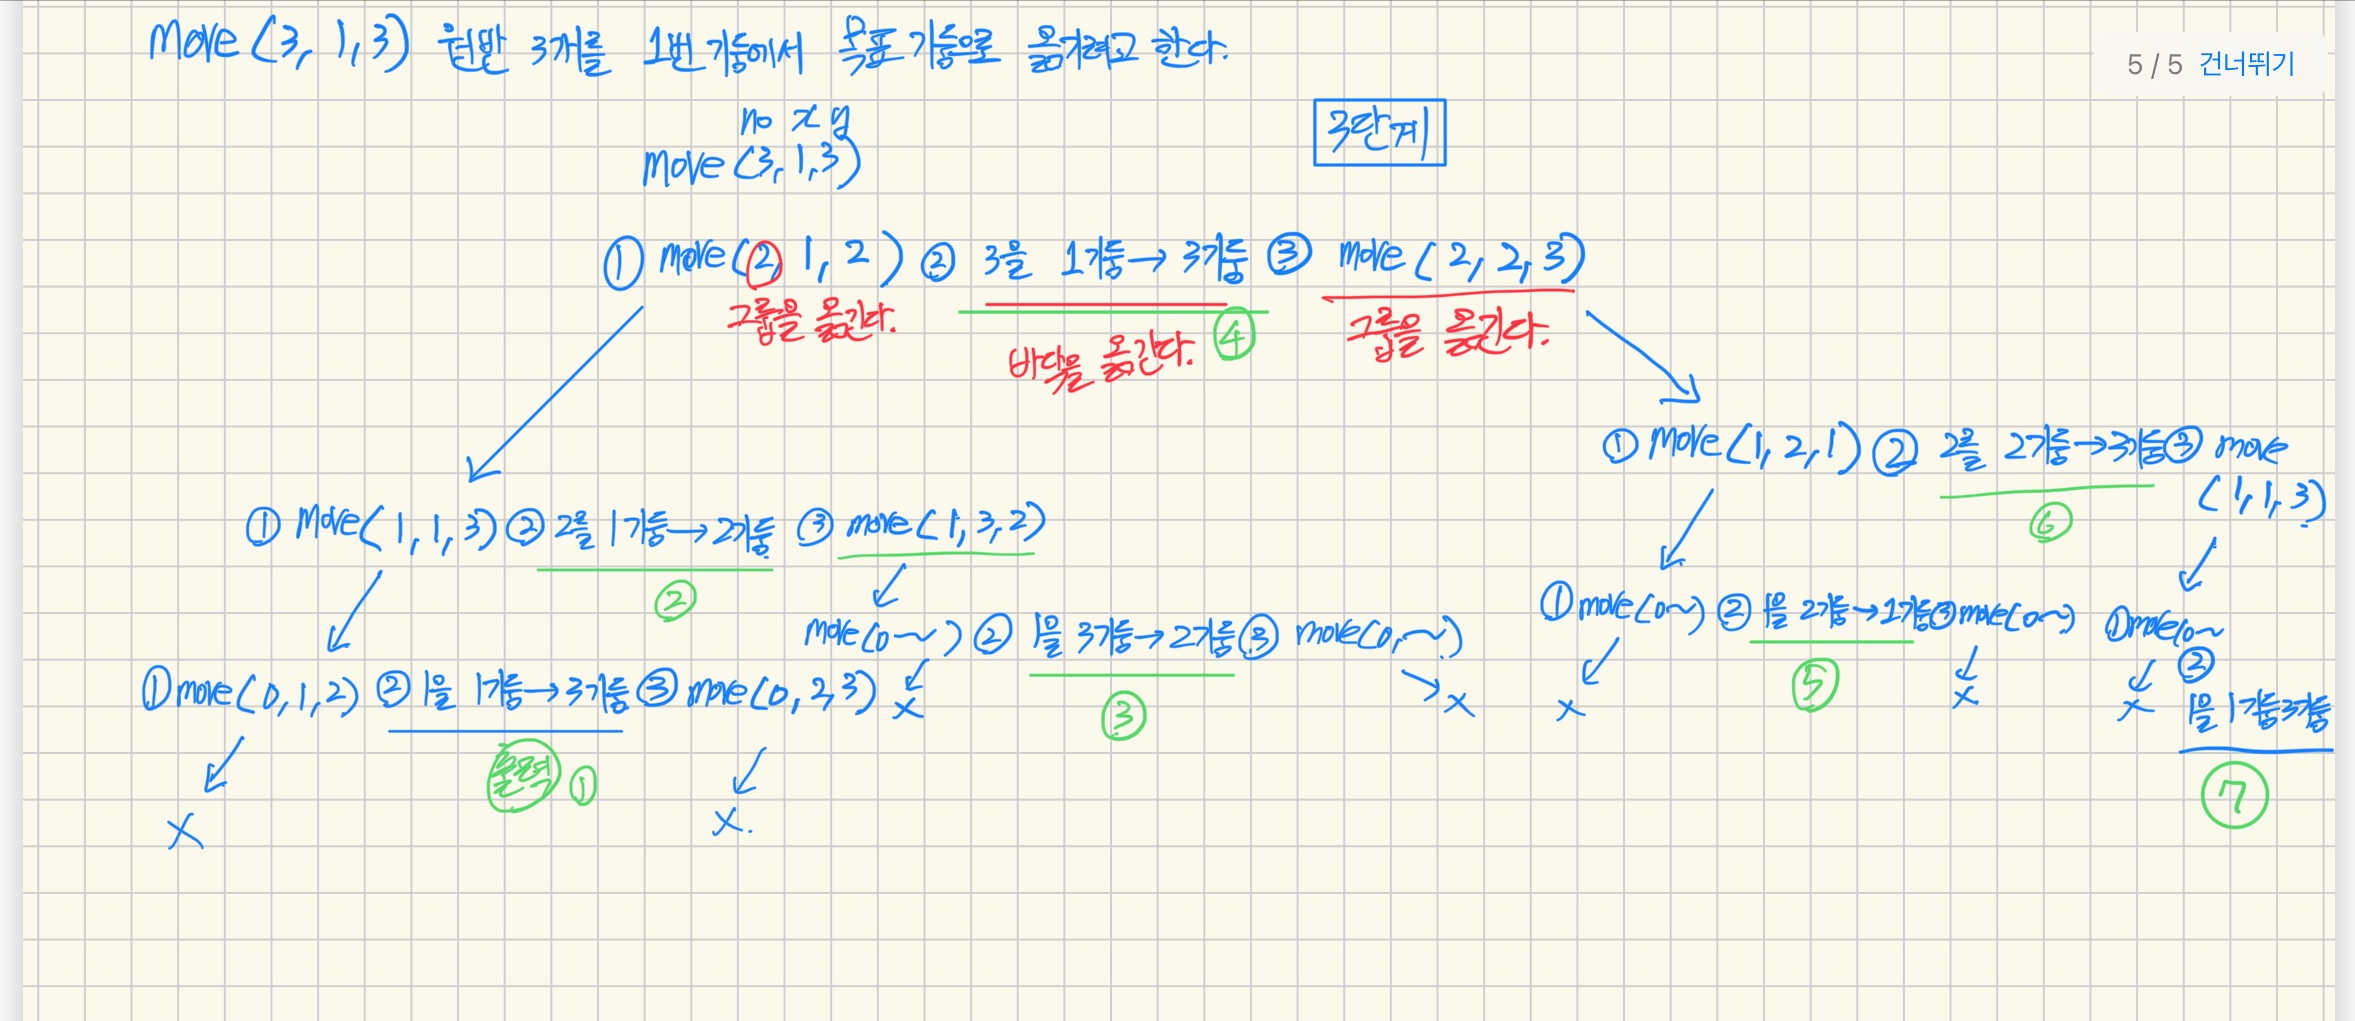 move (3, 1, 3) 원반 3개를 1번 기둥에서 목표 기둥으로 옮기려고 한다.
5 / 5 건너뛰기
no x y
move (3, 1, 3)
3단계
① move(2, 1, 2) ② 3을 1기둥→3기둥 ③ move (2, 2, 3)
그룹을 옮긴다.
바닥을 옮긴다. ④
그룹을 옮긴다.
① move(1, 2, 1) ② 2를 2기둥→3기둥 ③ move
(1, 1, 3)
⑥
① move(1, 1, 3) ② 2를 1기둥→2기둥 ③ move(1, 3, 2)
②
① move(0~) ② 1을 2기둥→1기둥 ③ move(0~)
⑤
x
x
① move(0~
②
x
1을 1기둥3기둥
⑦
move(0~) ② 1을 3기둥→2기둥 ③ move(0,~)
x
③
x
① move(0, 1, 2) ② 1을 1기둥→3기둥 ③ move(0, 2, 3)
출력 ①
x
x.